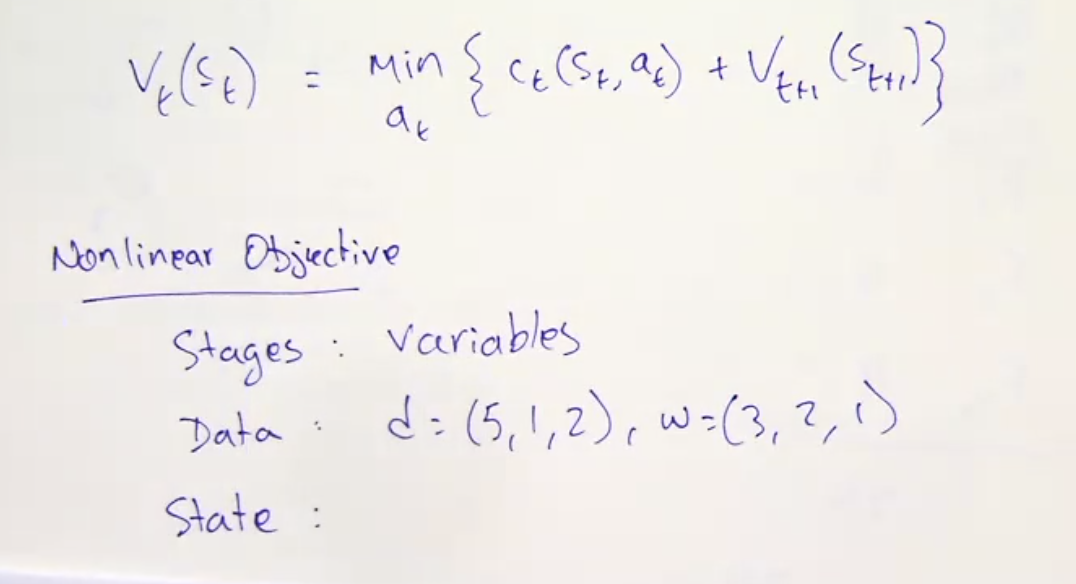 V_t(S_t) = Min_{a_t} { c_t(S_t, a_t) + V_{t+1}(S_{t+1}) }
Nonlinear Objective
Stages : Variables
Data : d = (5, 1, 2), w = (3, 2, 1)
State :